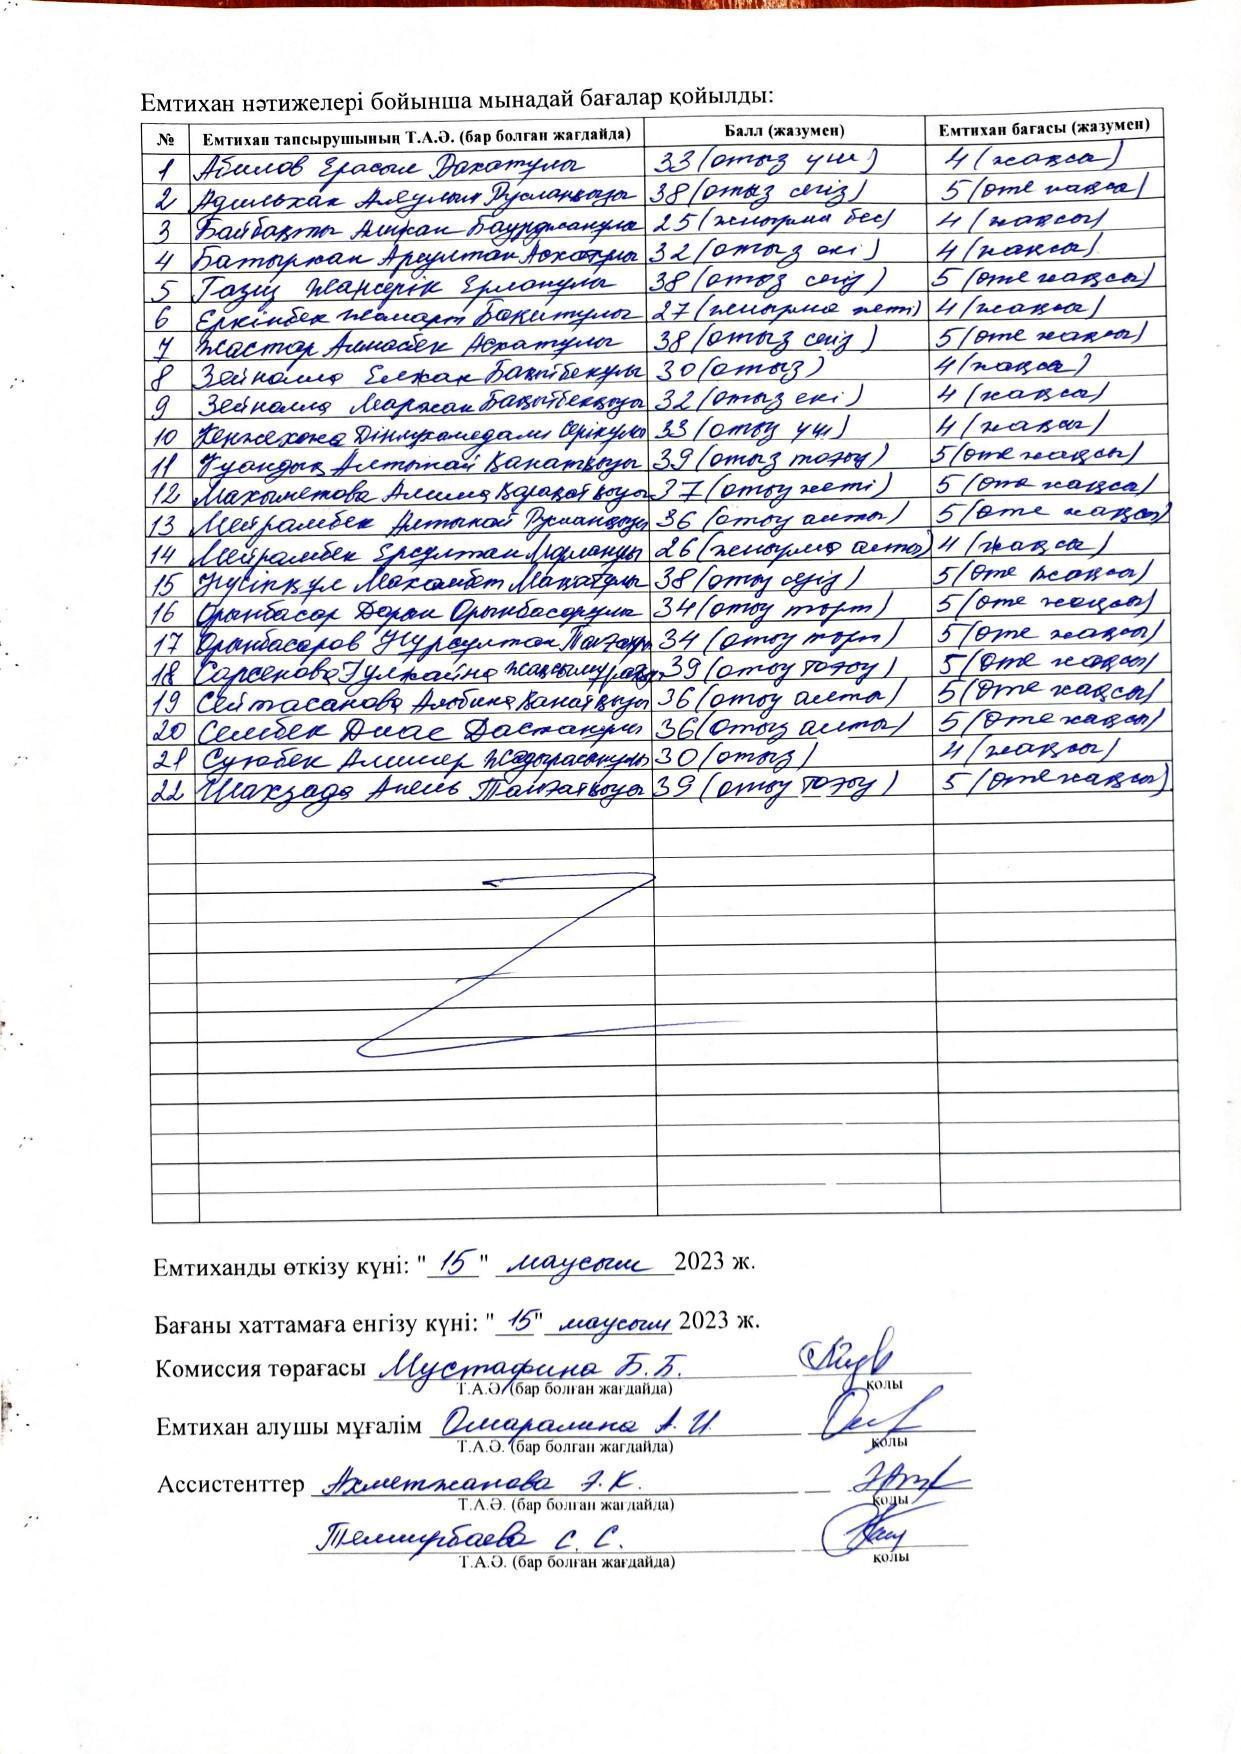 Емтихан нәтижелері бойынша мынадай бағалар қойылды:
№ Емтихан тапсырушының Т.А.Ә. (бар болған жағдайда) Балл (жазумен) Емтихан бағасы (жазумен)
1 Абилов Ерасыл Дахатулы 33 (отыз үш) 4 (жақсы)
2 Адильхан Аяулым Русланқызы 38 (отыз сегіз) 5 (өте жақсы)
3 Байбақты Алихан Бауржанұлы 25 (жиырма бес) 4 (жақсы)
4 Батырхан Арсултан Асхатұлы 32 (отыз екі) 4 (жақсы)
5 Газиз Жансерік Ерланулы 38 (отыз сегіз) 5 (өте жақсы)
6 Еркінбек Жомарт Бақитулы 27 (жиырма жеті) 4 (жақсы)
7 Жастар Алмасбек Асхатулы 38 (отыз сегіз) 5 (өте жақсы)
8 Зейнолла Елжан Бақытбекулы 30 (отыз) 4 (жақсы)
9 Зейнолла Маржан Бақытбекқызы 32 (отыз екі) 4 (жақсы)
10 Кенжехожа Дінмухамедали Серікулы 33 (отыз үш) 4 (жақсы)
11 Қуандық Алтынай Қанатқызы 39 (отыз тоғыз) 5 (өте жақсы)
12 Махыметова Алина Қарақатқызы 37 (отыз жеті) 5 (өте жақсы)
13 Мейрамбек Алтынай Русланқызы 36 (отыз алты) 5 (өте жақсы)
14 Мейрамбек Ерсұлтан 26 (жиырма алты) 4 (жақсы)
15 Нүсіпқұл Махамбет Мақатұлы 38 (отыз сегіз) 5 (өте жақсы)
16 Орынбасар Дархан Орынбасарулы 34 (отыз төрт) 5 (өте жақсы)
17 Орынбасаров Нұрсұлтан 34 (отыз төрт) 5 (өте жақсы)
18 Сарсенова Гулжайна 39 (отыз тоғыз) 5 (өте жақсы)
19 Сейтасанова Альбина Қанатқызы 36 (отыз алты) 5 (өте жақсы)
20 Селбек Диас Дастанұлы 36 (отыз алты) 5 (өте жақсы)
21 Суюбек Алишер Жадырасынулы 30 (отыз) 4 (жақсы)
22 Шахзада Анель Талғатқызы 39 (отыз тоғыз) 5 (өте жақсы)
Емтиханды өткізу күні: "15" маусым 2023 ж.
Бағаны хаттамаға енгізу күні: "15" маусым 2023 ж.
Комиссия төрағасы Мустафина Б.Б.
Т.А.Ә. (бар болған жағдайда) қолы
Емтихан алушы мұғалім Омаралина А.И.
Т.А.Ә. (бар болған жағдайда) қолы
Ассистенттер Ахметжанова Г.К.
Т.А.Ә. (бар болған жағдайда) қолы
Темирбаева С.С.
Т.А.Ә. (бар болған жағдайда) қолы